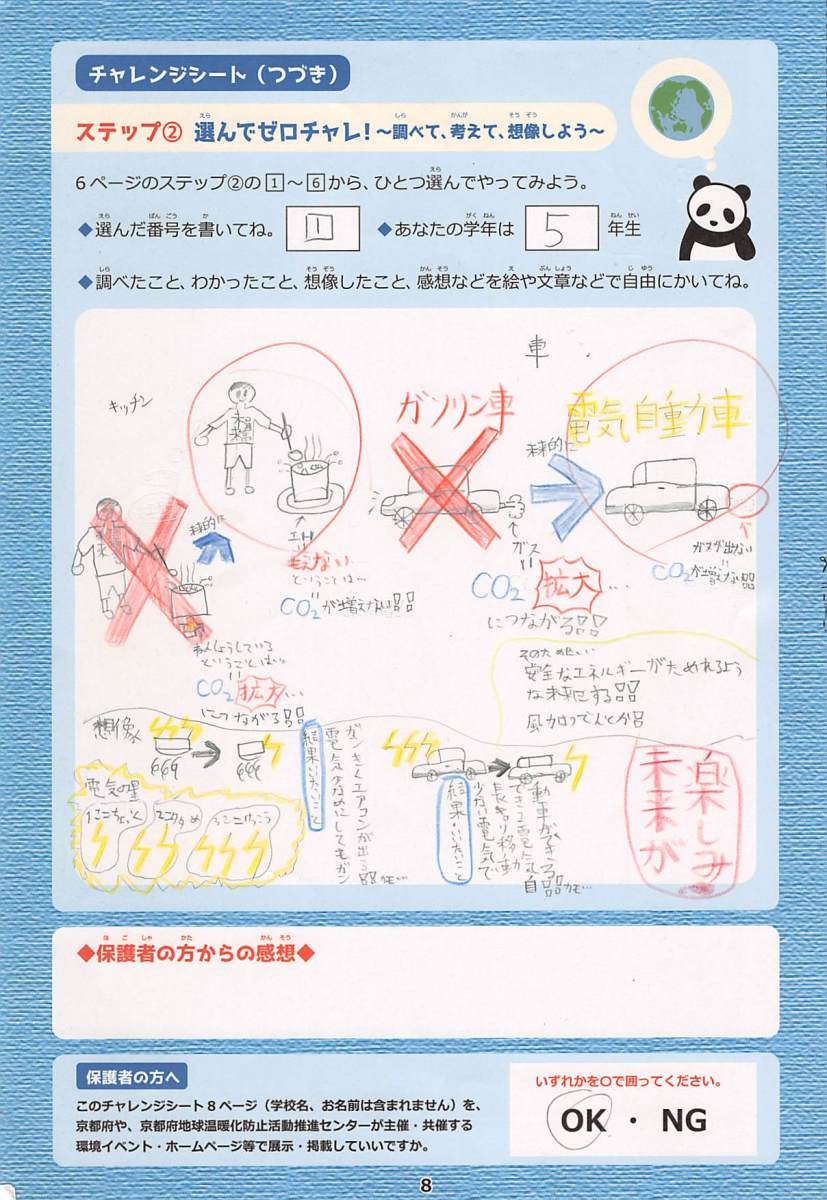 チャレンジシート（つづき）
ステップ② 選んでゼロチャレ！～調べて、考えて、想像しよう～
6ページのステップ②の1～6から、ひとつ選んでやってみよう。
◆選んだ番号を書いてね。 1 ◆あなたの学年は 5 年生
◆調べたこと、わかったこと、想像したこと、感想などを絵や文章などで自由にかいてね。
キッチン
未来的に
もえない
ということは…
CO2が増えない
ねんしょうしている
ということは
CO2拡大…
につながる
車
ガソリン車
ガス
CO2拡大…
につながる
未来的に
電気自動車
ガスが出ない
CO2が増えない
そのために
安全なエネルギーがためれるよう
な未来にする
想像
電気の量
結果いいたいこと
ガンガンエアコンが出る
結果いいたいこと
少ない電気で
長きょり移動
できる電気自
動車ができる
楽しみ
未来が
◆保護者の方からの感想◆
保護者の方へ
このチャレンジシート8ページ（学校名、お名前は含まれません）を、
京都府や、京都府地球温暖化防止活動推進センターが主催・共催する
環境イベント・ホームページ等で展示・掲載していいですか。
いずれかを〇で囲ってください。
OK ・ NG
8